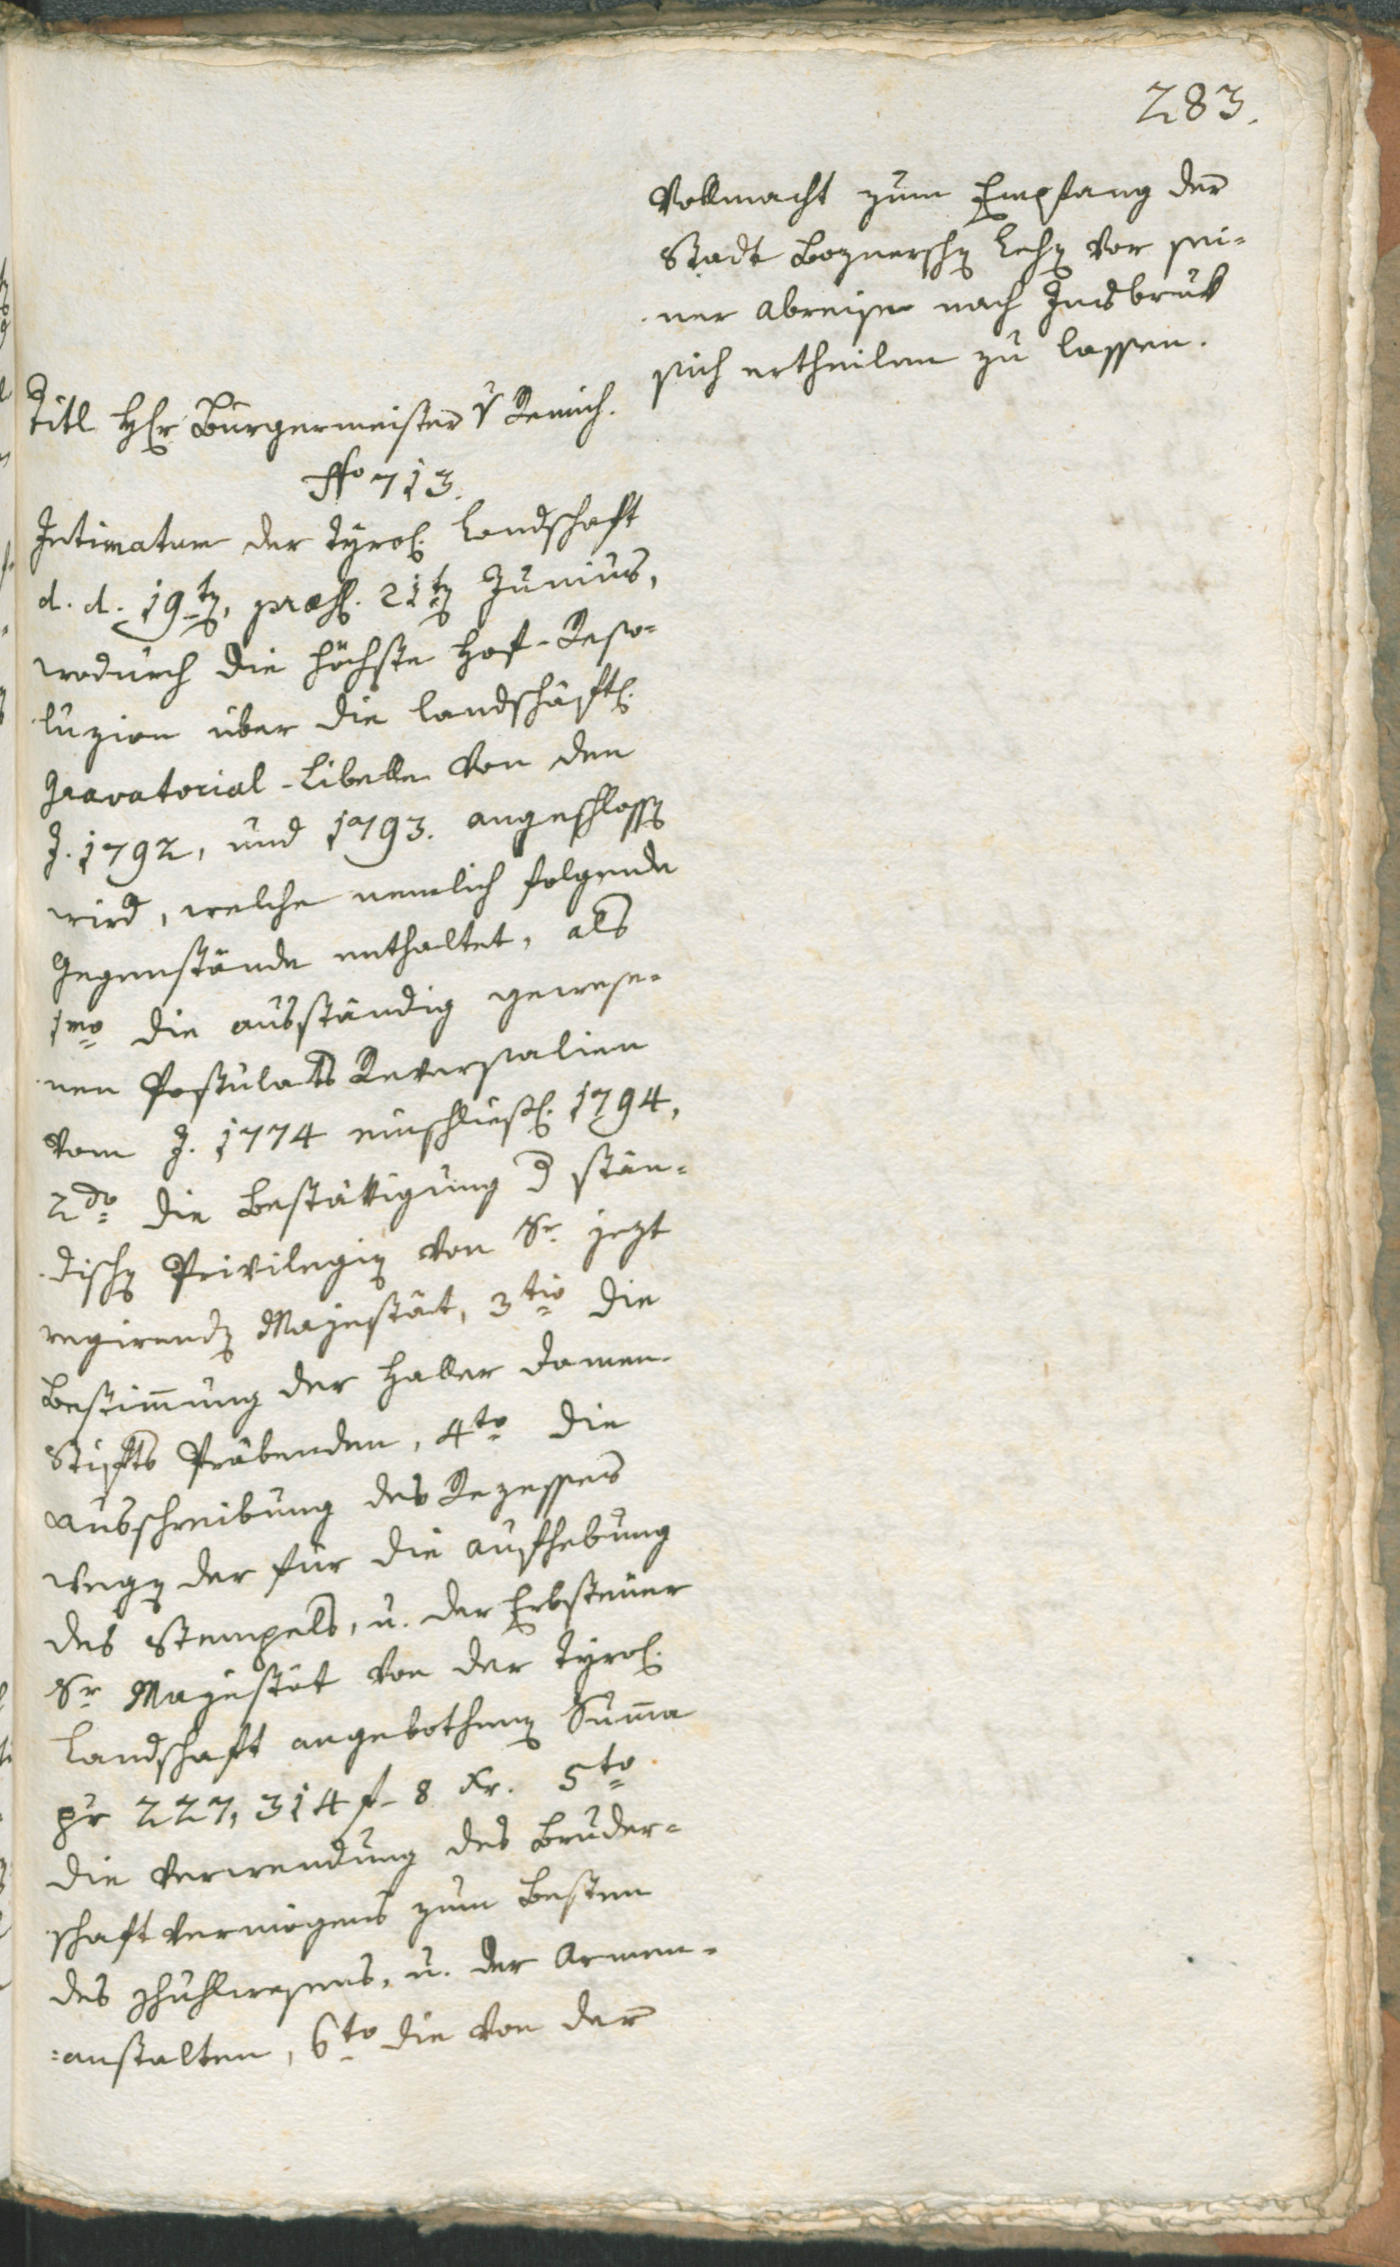 283.
Vollmacht zum Empfang der
Stadt Boznerschen Lehen vor sei-
ner Abreise nach Insbruk
sich ertheilen zu lassen.
Titl Hhr Bürgermeister v Remich.
No 713.
Intimatum der Tyrol. Landschaft
d. d. 19ten, praes. 21ten Junius,
wodurch die höchste Hof-Reso-
luzion über die landschäftl.
Gravatorial-Libelle von den
J. 1792, und 1793. angeschlossen
wird, welche nemlich folgende
Gegenstände enthaltet, als
1mo die ausständig gewese-
nen Postulats Reversalien
vom J. 1774 einschließl. 1794,
2do die Bestättigung der stän-
dischen Privilegien von Sr jezt
regirenden Majestät, 3tio die
Bestimmung der Haller Damen-
Stifts Präbenden, 4to die
Ausschreibung des Rezesses
wegen der für die Aufhebung
des Stempels, u. der Erbsteuer
Sr Majestät von der Tyrol.
Landschaft angebothenen Summa
pr 227,314 f- 8 Xr. 5to
die Verwendung des Bruder-
schaft Vermögens zum Besten
des Schuhlwesens, u. der Armen-
=anstalten, 6to die von der